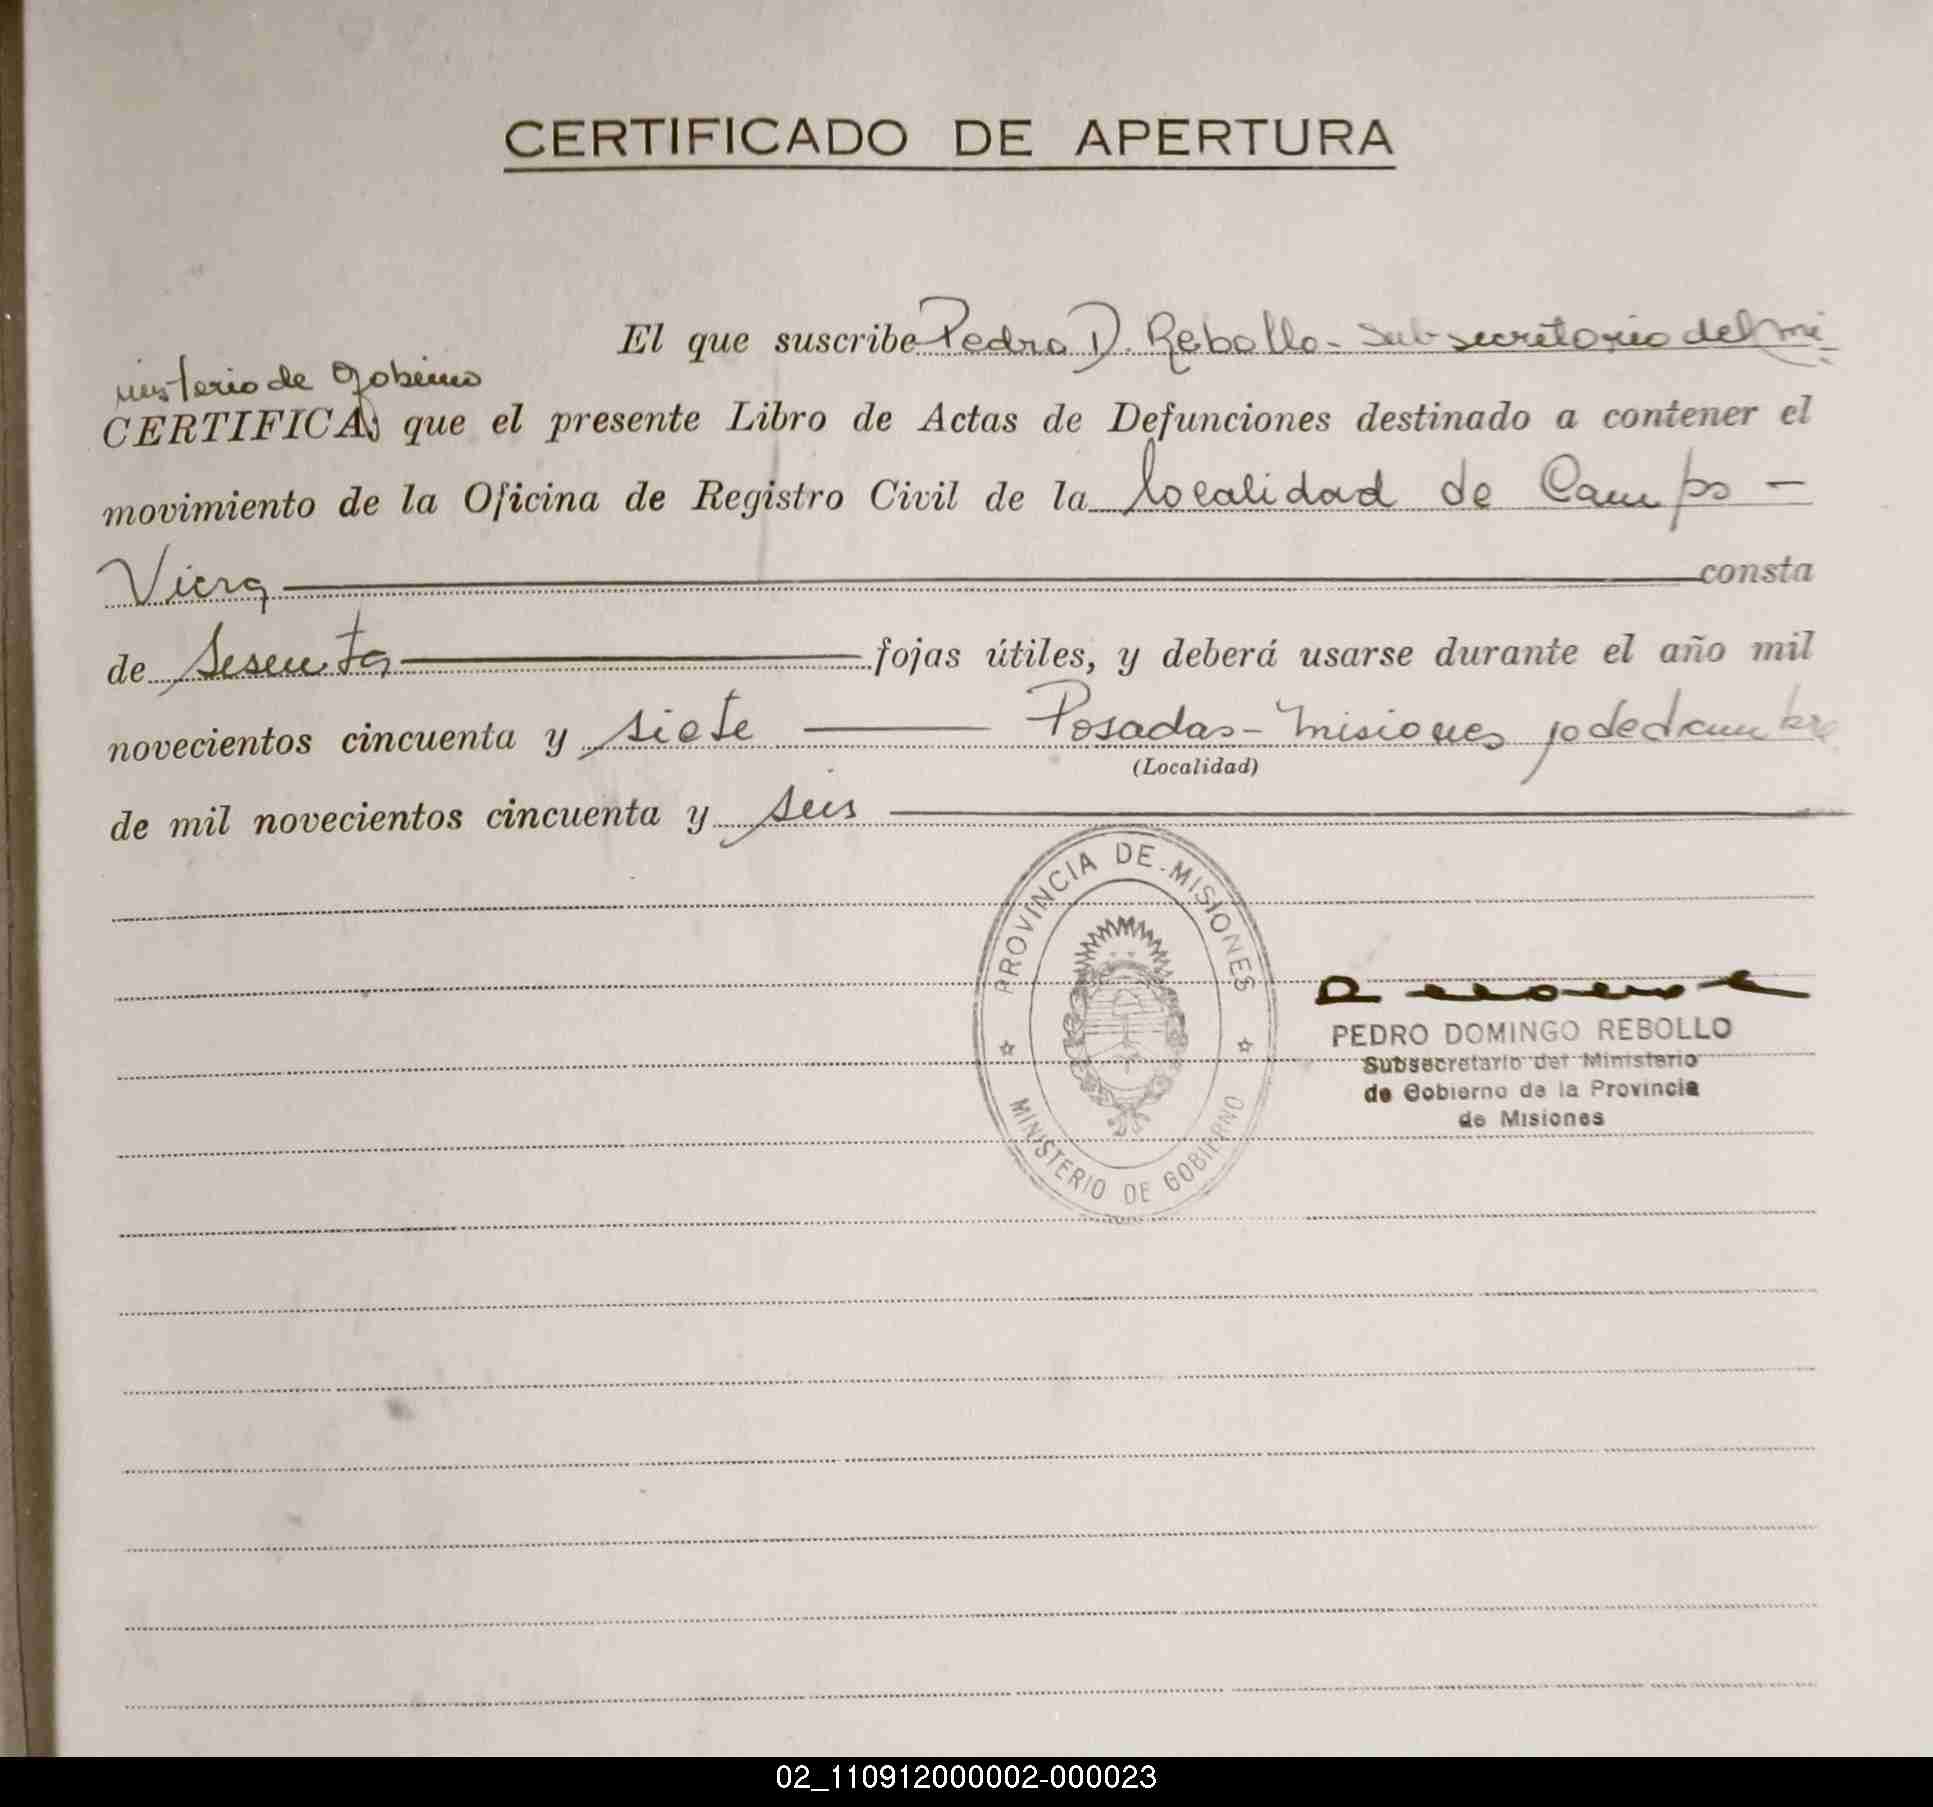 CERTIFICADO DE APERTURA
El que suscribe Pedro D. Rebollo - Subsecretario del mi-
nisterio de Gobierno
CERTIFICA, que el presente Libro de Actas de Defunciones destinado a contener el
movimiento de la Oficina de Registro Civil de la localidad de Campo -
Viera consta
de Sesenta fojas útiles, y deberá usarse durante el año mil
novecientos cincuenta y siete Posadas - Misiones
(Localidad)
de mil novecientos cincuenta y seis
PROVINCIA DE MISIONES
MINISTERIO DE GOBIERNO
PEDRO DOMINGO REBOLLO
Subsecretario del Ministerio
de Gobierno de la Provincia
de Misiones
02_110912000002-000023